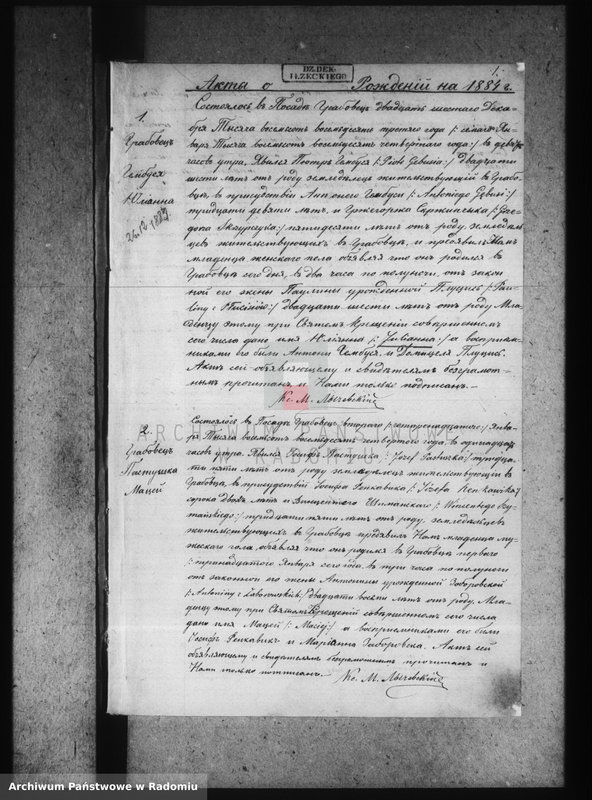 DZ. DEK.
IŁŻECKIEGO
1.
Акты о Рожденій на 1884 г.
1.
Грабовец
Гембуся
Юліанна
26.12.1883
Состоялось въ Посадѣ Грабовецъ двадцать шестаго Дека-
бря Тысяча восемьсотъ восемьдесятъ третяго года /: седмаго Ян-
варя Тысяча восемьсотъ восемьдесятъ четвертаго года :/ въ девять
часовъ утра. Явился Петръ Гембуся /: Piotr Gębusia :/ двадцати
шести лѣтъ отъ роду земледѣлецъ жительствующій въ Грабо-
вцѣ, въ присутствіи Антонего Гембуси /: Antoniego Gębusi :/
тридцати девяти лѣтъ, и Гржегоржа
пятидесяти лѣтъ отъ роду, земледѣль-
цевъ жительствующихъ въ Грабовцѣ, и предъявилъ Намъ
младенца женскаго пола объявляя что онъ родился въ
Грабовцѣ сего дня, въ два часа по полуночи, отъ закон-
ной его жены Паулины урожденной Тлуцикъ /: Pau-
liny z Tłucików :/ двадцати шести лѣтъ отъ роду. Мла-
денцу этому при Святомъ Крещеніи совершенномъ
сего числа дано имя Юліянна /: Julianna :/ а воспріем-
никами его были Антони Гембуся и Домицеля Тлуцикъ.
Актъ сей объявляющему и свидѣтелямъ безграмот-
нымъ прочитанъ и Нами только подписанъ. —
Кс. М.
2.
Грабовецъ
Пастушка
Мацей
Состоялось въ Посадѣ Грабовецъ втораго /: четырнадцатаго :/ Янва-
ря Тысяча восемьсотъ восемьдесятъ четвертаго года, въ одинадцать
часовъ утра. Явился Іосифъ Пастушка /: Józef Pastuszka :/ тридца-
ти пяти лѣтъ отъ роду земледѣлецъ жительствующій въ
Грабовцѣ, въ присутствіи Іосифа
сорока двохъ лѣтъ и Винцентего Шиманскаго /: Wincentego Szy-
mańskiego :/ тридцати пяти лѣтъ отъ роду, земледѣльцевъ
жительствующихъ въ Грабовцѣ предъявилъ Намъ младенца му-
жескаго пола, объявляя что онъ родился въ Грабовцѣ перваго
/: тринадцатаго Января сего года въ три часа по полуночи
отъ законной его жены Антонины урожденной Заборовской
/: Antoniny z Zaborowskich :/ двадцати восьми лѣтъ отъ роду. Мла-
денцу этому при Святомъ Крещеніи совершенномъ сего числа
дано имя Мацей /: Maciej :/ а воспріемниками его были
Іосифъ и Маріанна Заборовска. Актъ сей
объявляющему и свидѣтелямъ безграмотнымъ прочитанъ и
Нами только подписанъ. Кс. М.
ARCHIWUM PAŃSTWOWE
W RADOMIU
Archiwum Państwowe w Radomiu